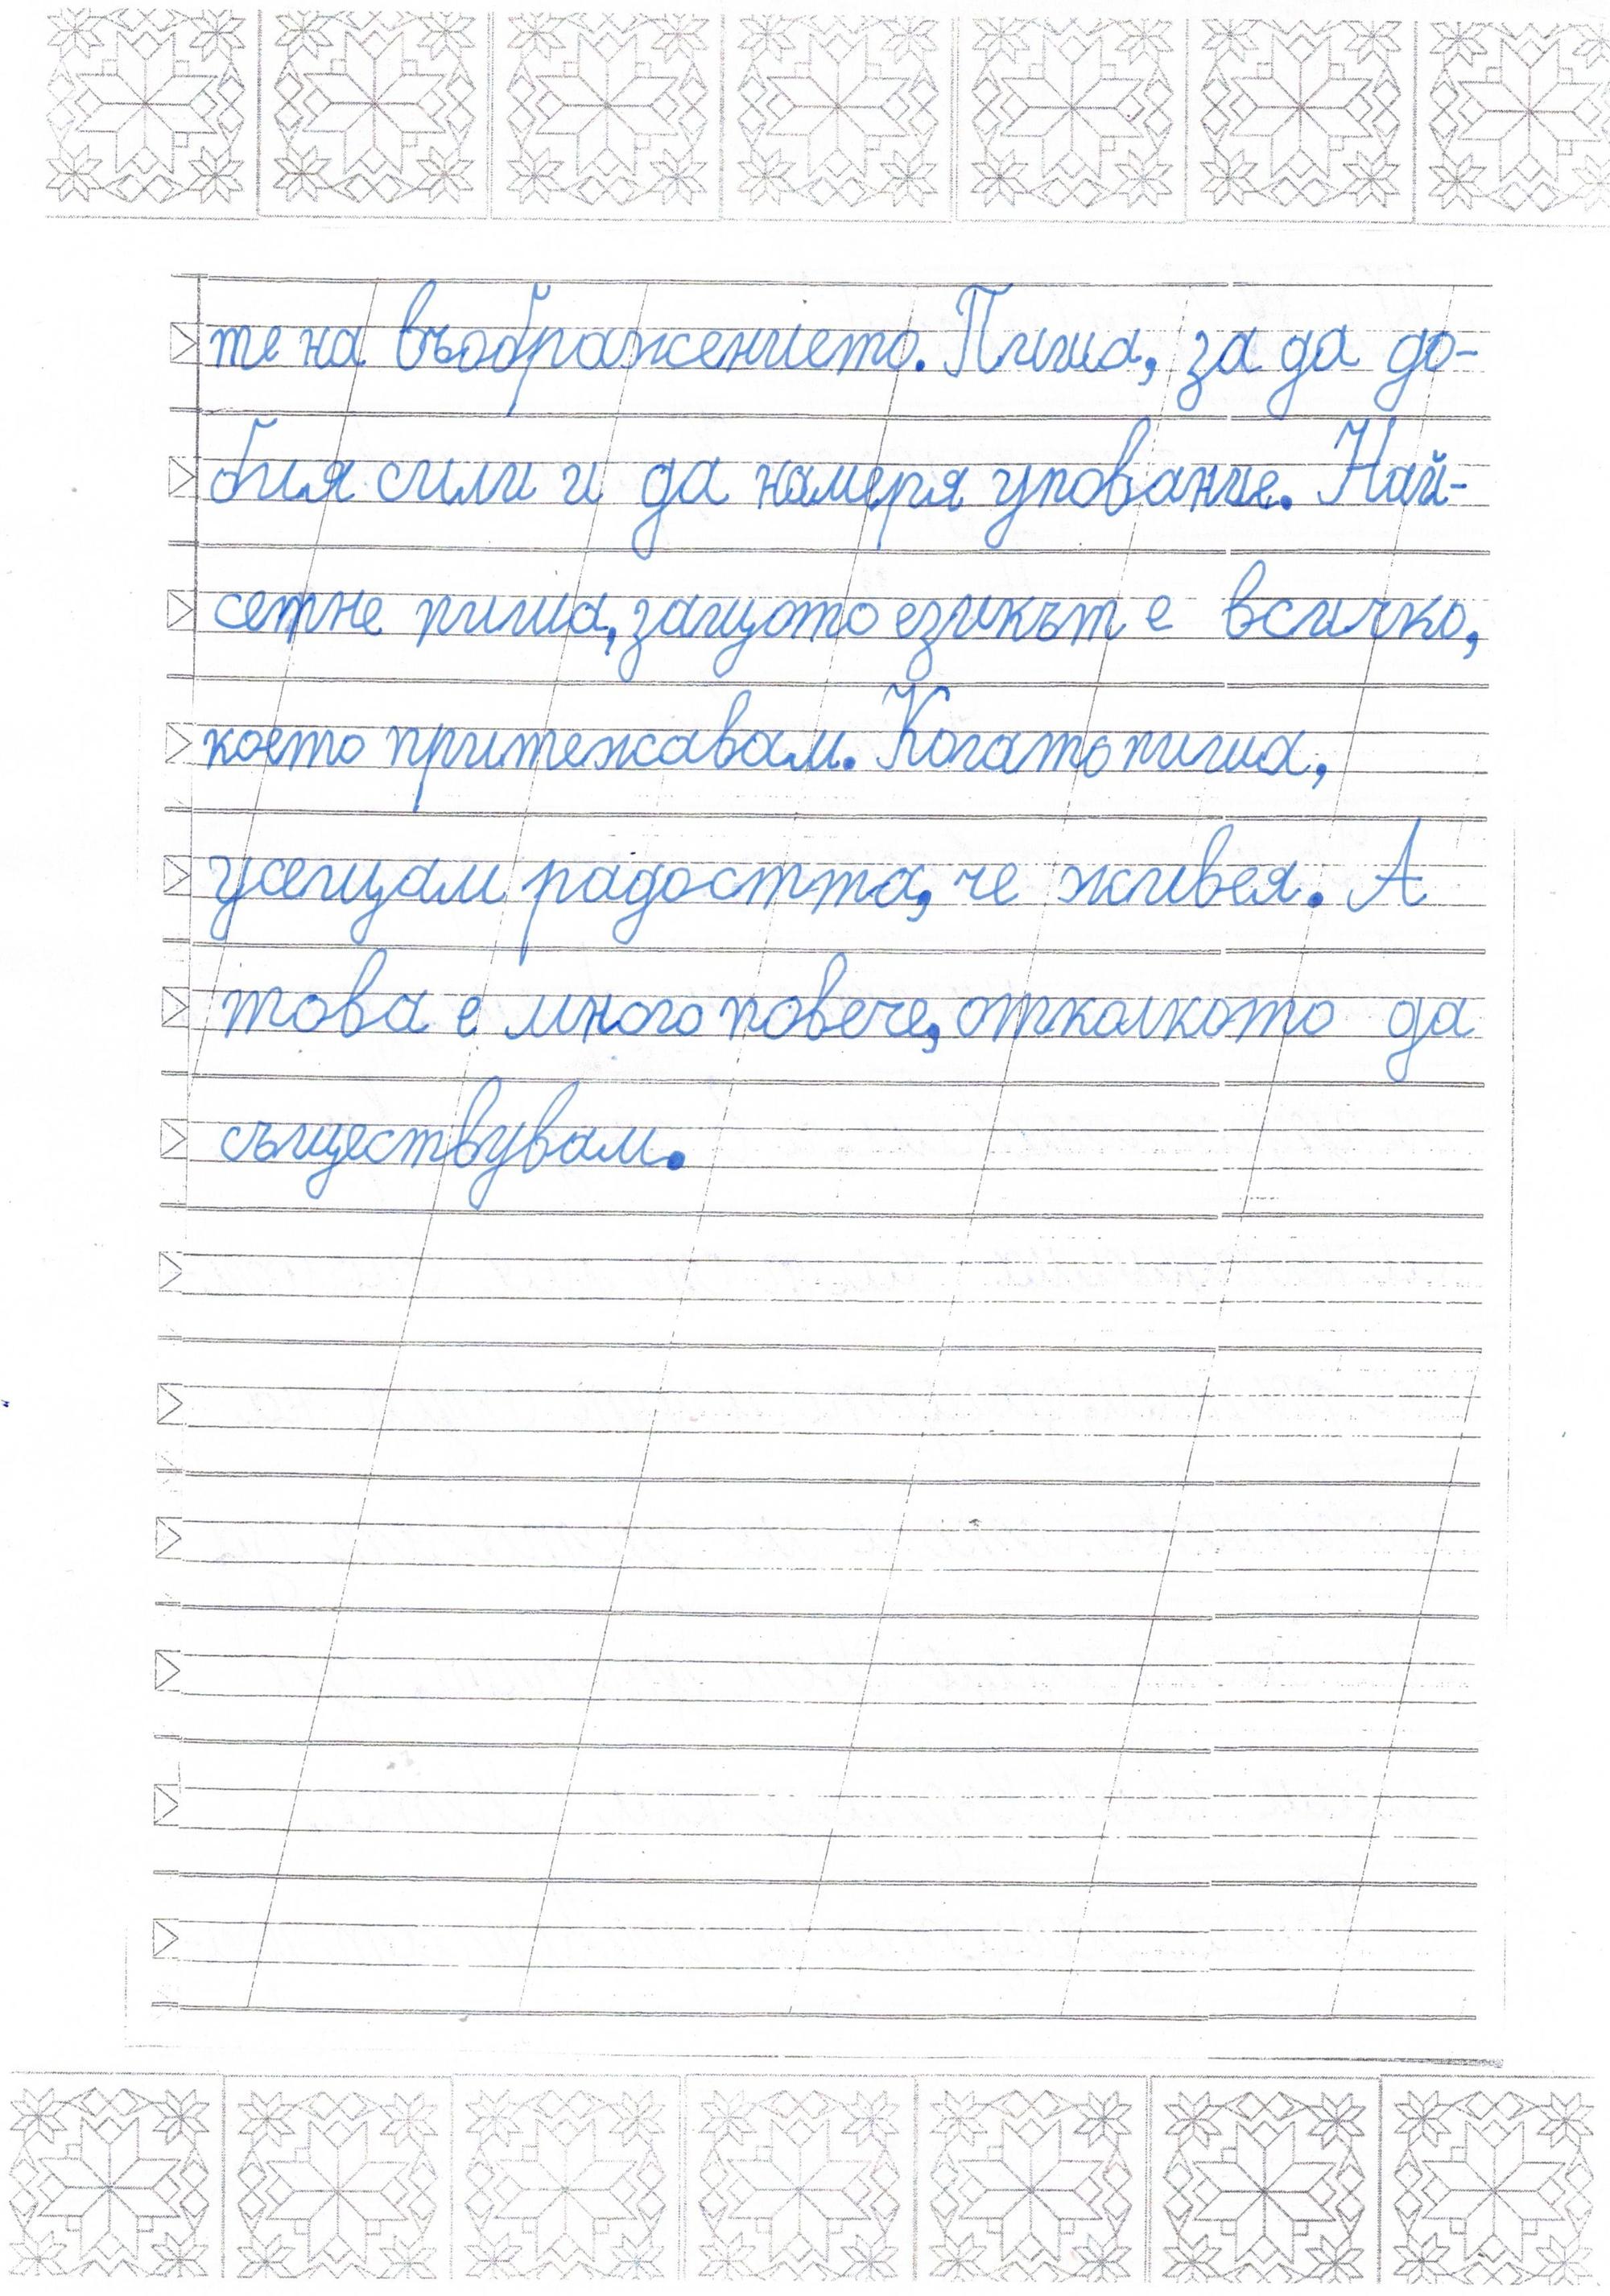 те на въображението. Пиша, за да до-
бия сили и да намеря упование. Най-
сетне пиша, защото езикът е всичко,
което притежавам. Когато пиша,
усещам радостта, че живея. А
това е много повече, отколкото да
съществувам.